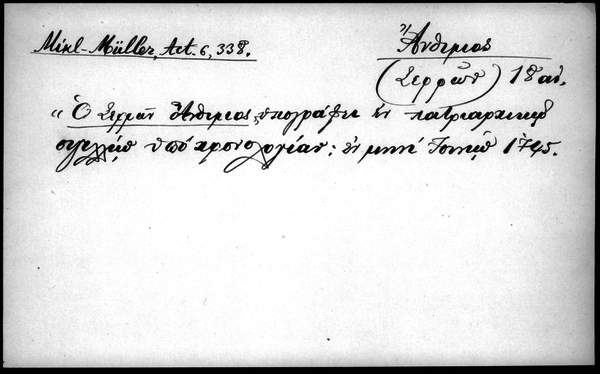 Mikl-Müller, Act. 6, 338.
Ἄνθιμος
(Σερρῶν) 18 αἰ.
"Ὁ Σερρῶν Ἄνθιμος, ὑπογράφει ἐν πατριαρχικῷ
σιγιλλίῳ ὑπὸ χρονολογίαν: ἐν μηνὶ Ἰουνίῳ 1745.